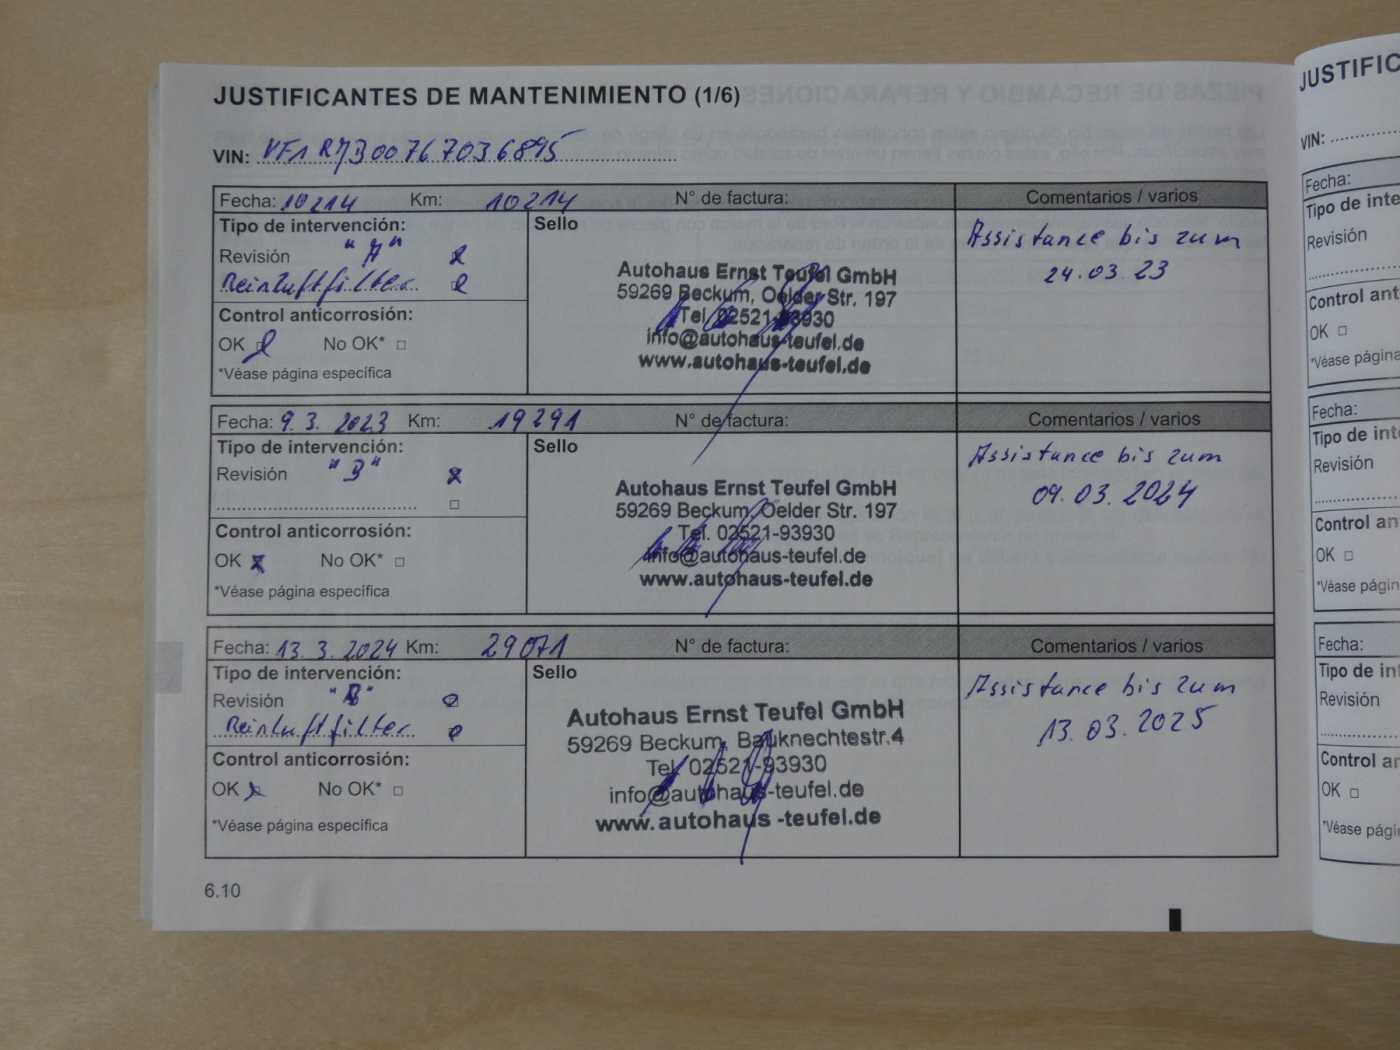 JUSTIFICANTES DE MANTENIMIENTO (1/6)
VIN: VF1RJB00767036895
Fecha: 10214 Km: 10214 N° de factura: Comentarios / varios
Tipo de intervención: Sello
Revisión "A"
Reinluftfilter
Control anticorrosión:
OK No OK*
*Véase página específica
Autohaus Ernst Teufel GmbH
59269 Beckum, Oelder Str. 197
Tel. 02521-93930
info@autohaus-teufel.de
www.autohaus-teufel.de
Assistance bis zum
24.03.23
Fecha: 9.3.2023 Km: 19291 N° de factura: Comentarios / varios
Tipo de intervención: Sello
Revisión "B"
Control anticorrosión:
OK No OK*
*Véase página específica
Autohaus Ernst Teufel GmbH
59269 Beckum, Oelder Str. 197
Tel. 02521-93930
info@autohaus-teufel.de
www.autohaus-teufel.de
Assistance bis zum
09.03.2024
Fecha: 13.3.2024 Km: 29071 N° de factura: Comentarios / varios
Tipo de intervención: Sello
Revisión
Reinluftfilter
Control anticorrosión:
OK No OK*
*Véase página específica
Autohaus Ernst Teufel GmbH
59269 Beckum, Bauknechtestr.4
Tel. 02521-93930
info@autohaus-teufel.de
www.autohaus-teufel.de
Assistance bis zum
13.03.2025
6.10
JUSTIFIC
VIN:
Fecha:
Tipo de inte
Revisión
Control anti
OK
*Véase página
Fecha:
Tipo de int
Revisión
Control an
OK
*Véase págin
Fecha:
Tipo de in
Revisión
Control a
OK
*Véase pági